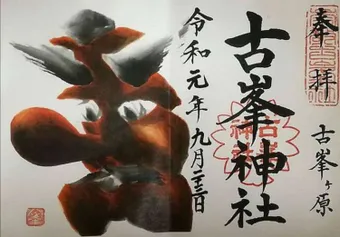 奉拝
古峯ヶ原
古峯神社
令和元年九月二十三日